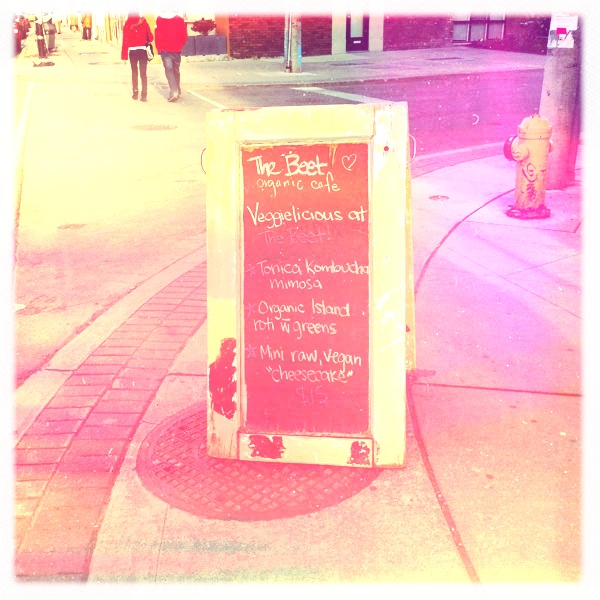 The Beet! ♡
organic cafe
Veggielicious at
The Beet!
* Tonica Kombucha
mimosa
* Organic Island
roti w greens
* Mini raw, vegan
"cheesecake"
$15